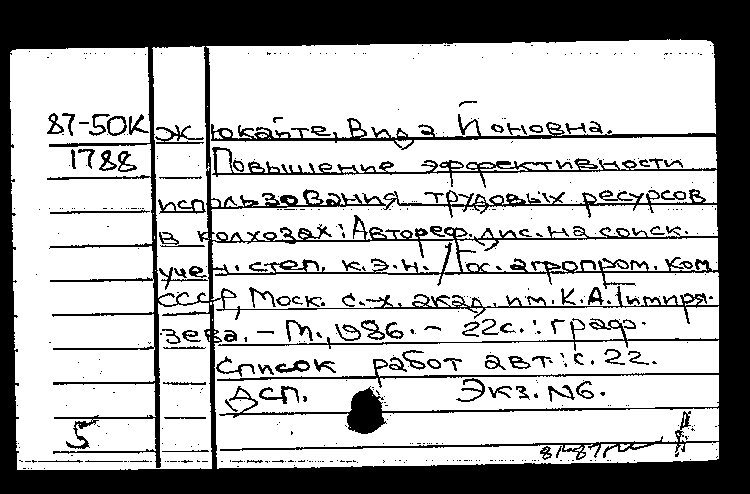 87-50К Жюкайте, Вида Йоновна.
1788 Повышение эффективности
использования трудовых ресурсов
в колхозах: Автореф. дис. на соиск.
учен. степ. к.э.н. / Гос. агропром. ком.
СССР, Моск. с.-х. акад. им. К.А. Тимиря-
зева. - М., 1986. - 22с.: граф.
Список работ авт.: с. 22.
ДСП. Экз. N6.
5